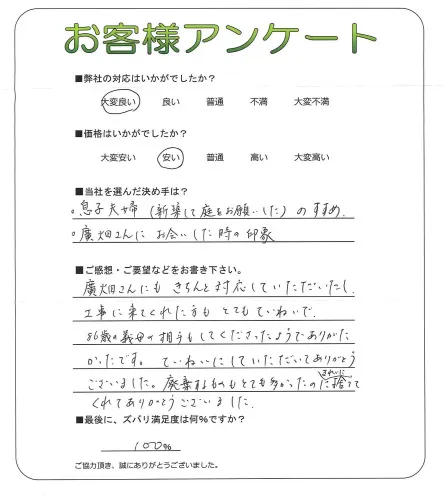 お客様アンケート
■弊社の対応はいかがでしたか？
大変良い 良い 普通 不満 大変不満
■価格はいかがでしたか？
大変安い 安い 普通 高い 大変高い
■当社を選んだ決め手は？
。息子夫婦（新築して庭をお願いした）のすすめ.
。廣畑さんに お会いした時の印象
■ご感想・ご要望などをお書き下さい。
廣畑さんにも きちんと対応していただいたし.
工事に来てくれた方も とてもていねいで.
86歳の義母の相手もしてくださったようでありがた
かったです。 ていねいにしていただいてありがとう
ございました。廃棄するものもとても多かったのに捨てて
きれいに
くれてありがとうございました.
■最後に、ズバリ満足度は何%ですか？
100%
ご協力頂き、誠にありがとうございました。